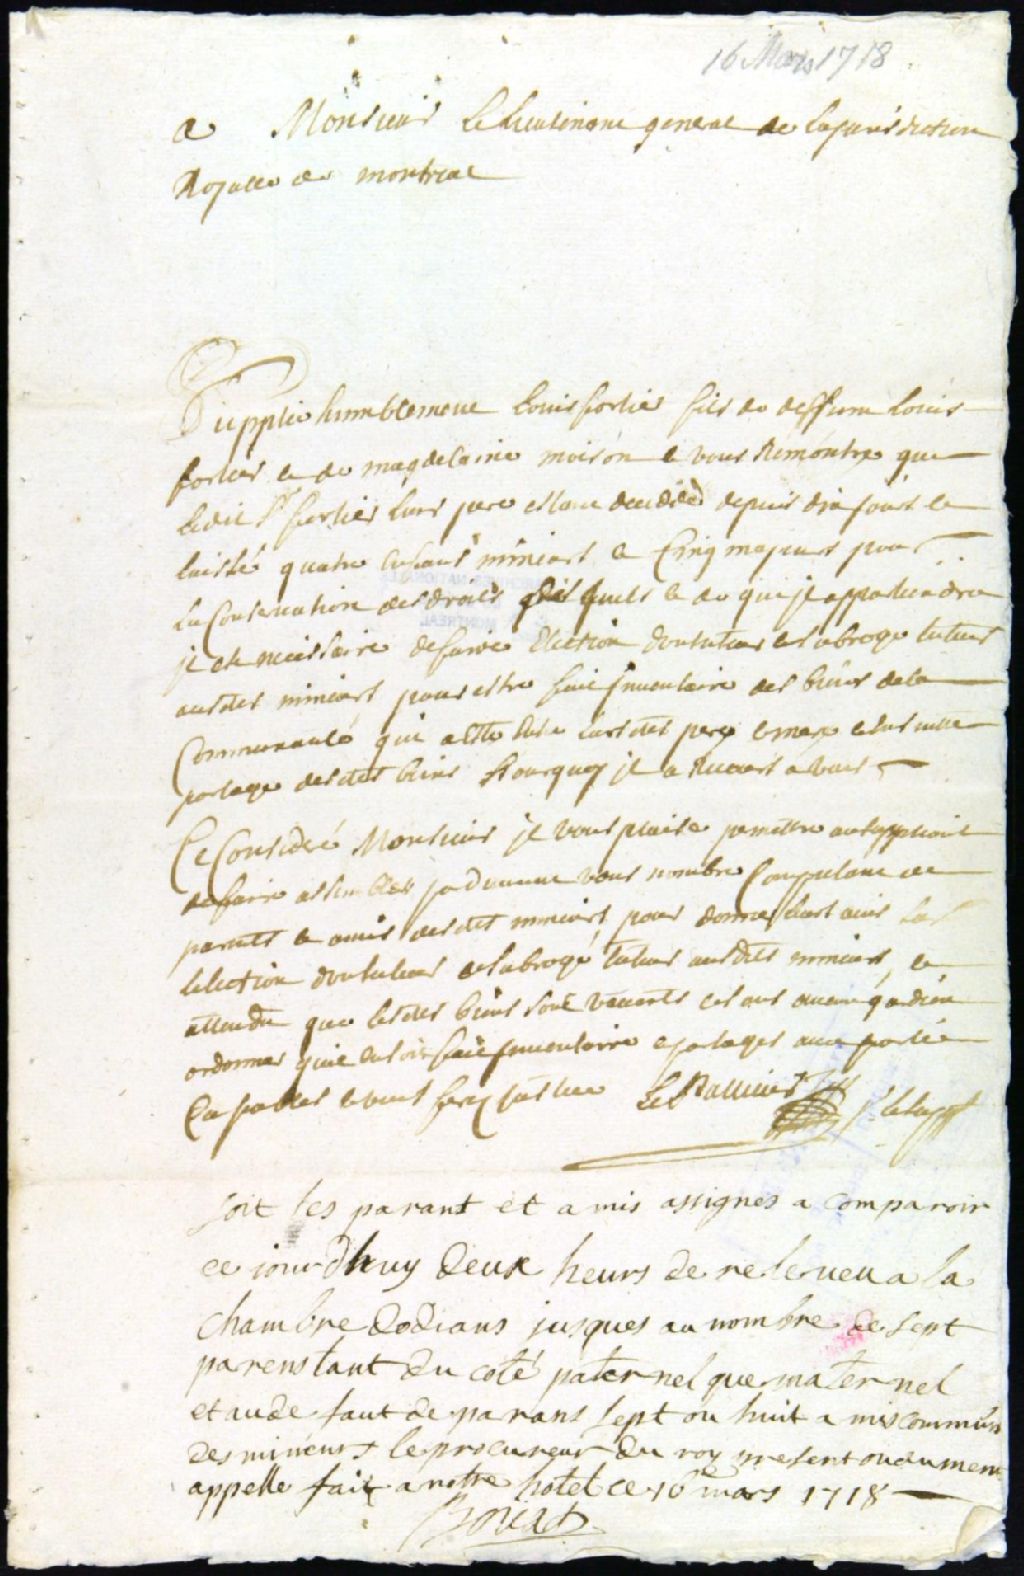 16 Mars 1718
a Monsieur Le Lieutenant general de la jurisdiction
Royalle de montreal
Supplie humblement Louis fortier fils de deffunt Louis
fortier et de magdelaine moison et vous Remontre que
ledit Sr fortier leur pere estant decedé depuis dix jours et
laissé quatre enfans mineurs et Cinq majeurs pour
La Conservation des droits et de qui il appartiendra
il est necessaire de faire Election dun tuteur et subrogé tuteur
ausdits mineurs pour estre fait Inventaire des biens de la
Communauté qui a esté entre leursdits pere et mere et ensuitte
partage desdits biens Pourquoy il a Recours a vous
Ce Consideré Monsieur il vous plaise permettre au suppliant
de faire assembler pardevant vous nombre Competant de
parents et amis desdits mineurs pour donner leurs avis
lelection dun tuteur et subrogé tuteur ausdits mineurs et
attendu que lesdits biens sont vacants et sans aucun gardien
ordonner quil en soit fait Inventaire et partages
Capables et vous ferez justice Le Pallieur pr le suppt
soit les parant et amis assignes a comparoir
ce jourdhuy deux heurs de releveu a la
chambre dodians jusques au nombre de sept
parens tant du coté paternel que maternel
et au de faut de parans sept ou huit amis communs
des mineurs le procureur du roy present ou dument
appelle fait a notre hotel ce 16e mars 1718
Bouat